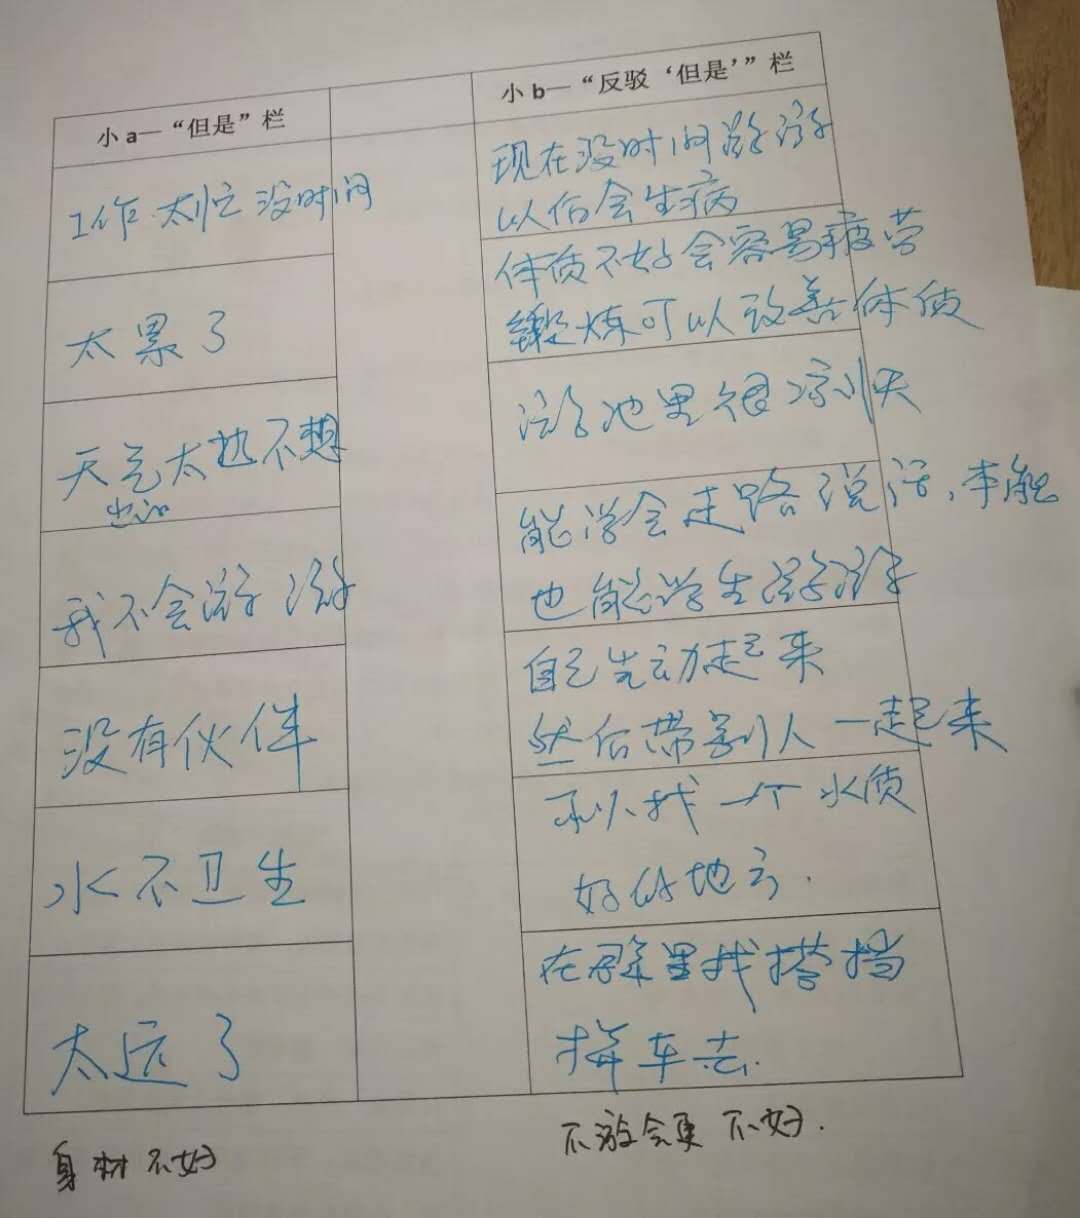 小 a—“但是”栏
小 b—“反驳‘但是’”栏
工作太忙没时间
现在没时间游泳
以后会生病
太累了
体质不好会容易疲劳
锻炼可以改善体质
天气太热不想
出汗
游池里很凉快
我不会游泳
能学会走路说话,本能
也能学生游泳
没有伙伴
自己先动起来
然后带别人一起来
水不卫生
可以找一个水质
好的地方.
太远了
在群里找搭档
拼车去.
身材不好
不游会更不好.